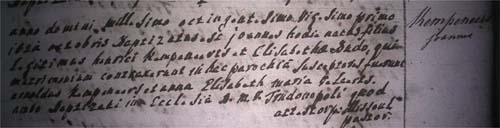 anno domini mill. simo octingent. simo vig. simo primo
octobris baptizatus est joannes hodie natus filius
legitimus henrici Kempeneers et Elisabetha qui
matrimonium contraxerunt in hac parochia susceptores fuerunt
arnoldus Kempeneers et anna Elisabeth maria
ambo baptizati in Ecclesia B. M. V. Trudonopoli quod
attestor
pastor.
Kempeneers
joannes